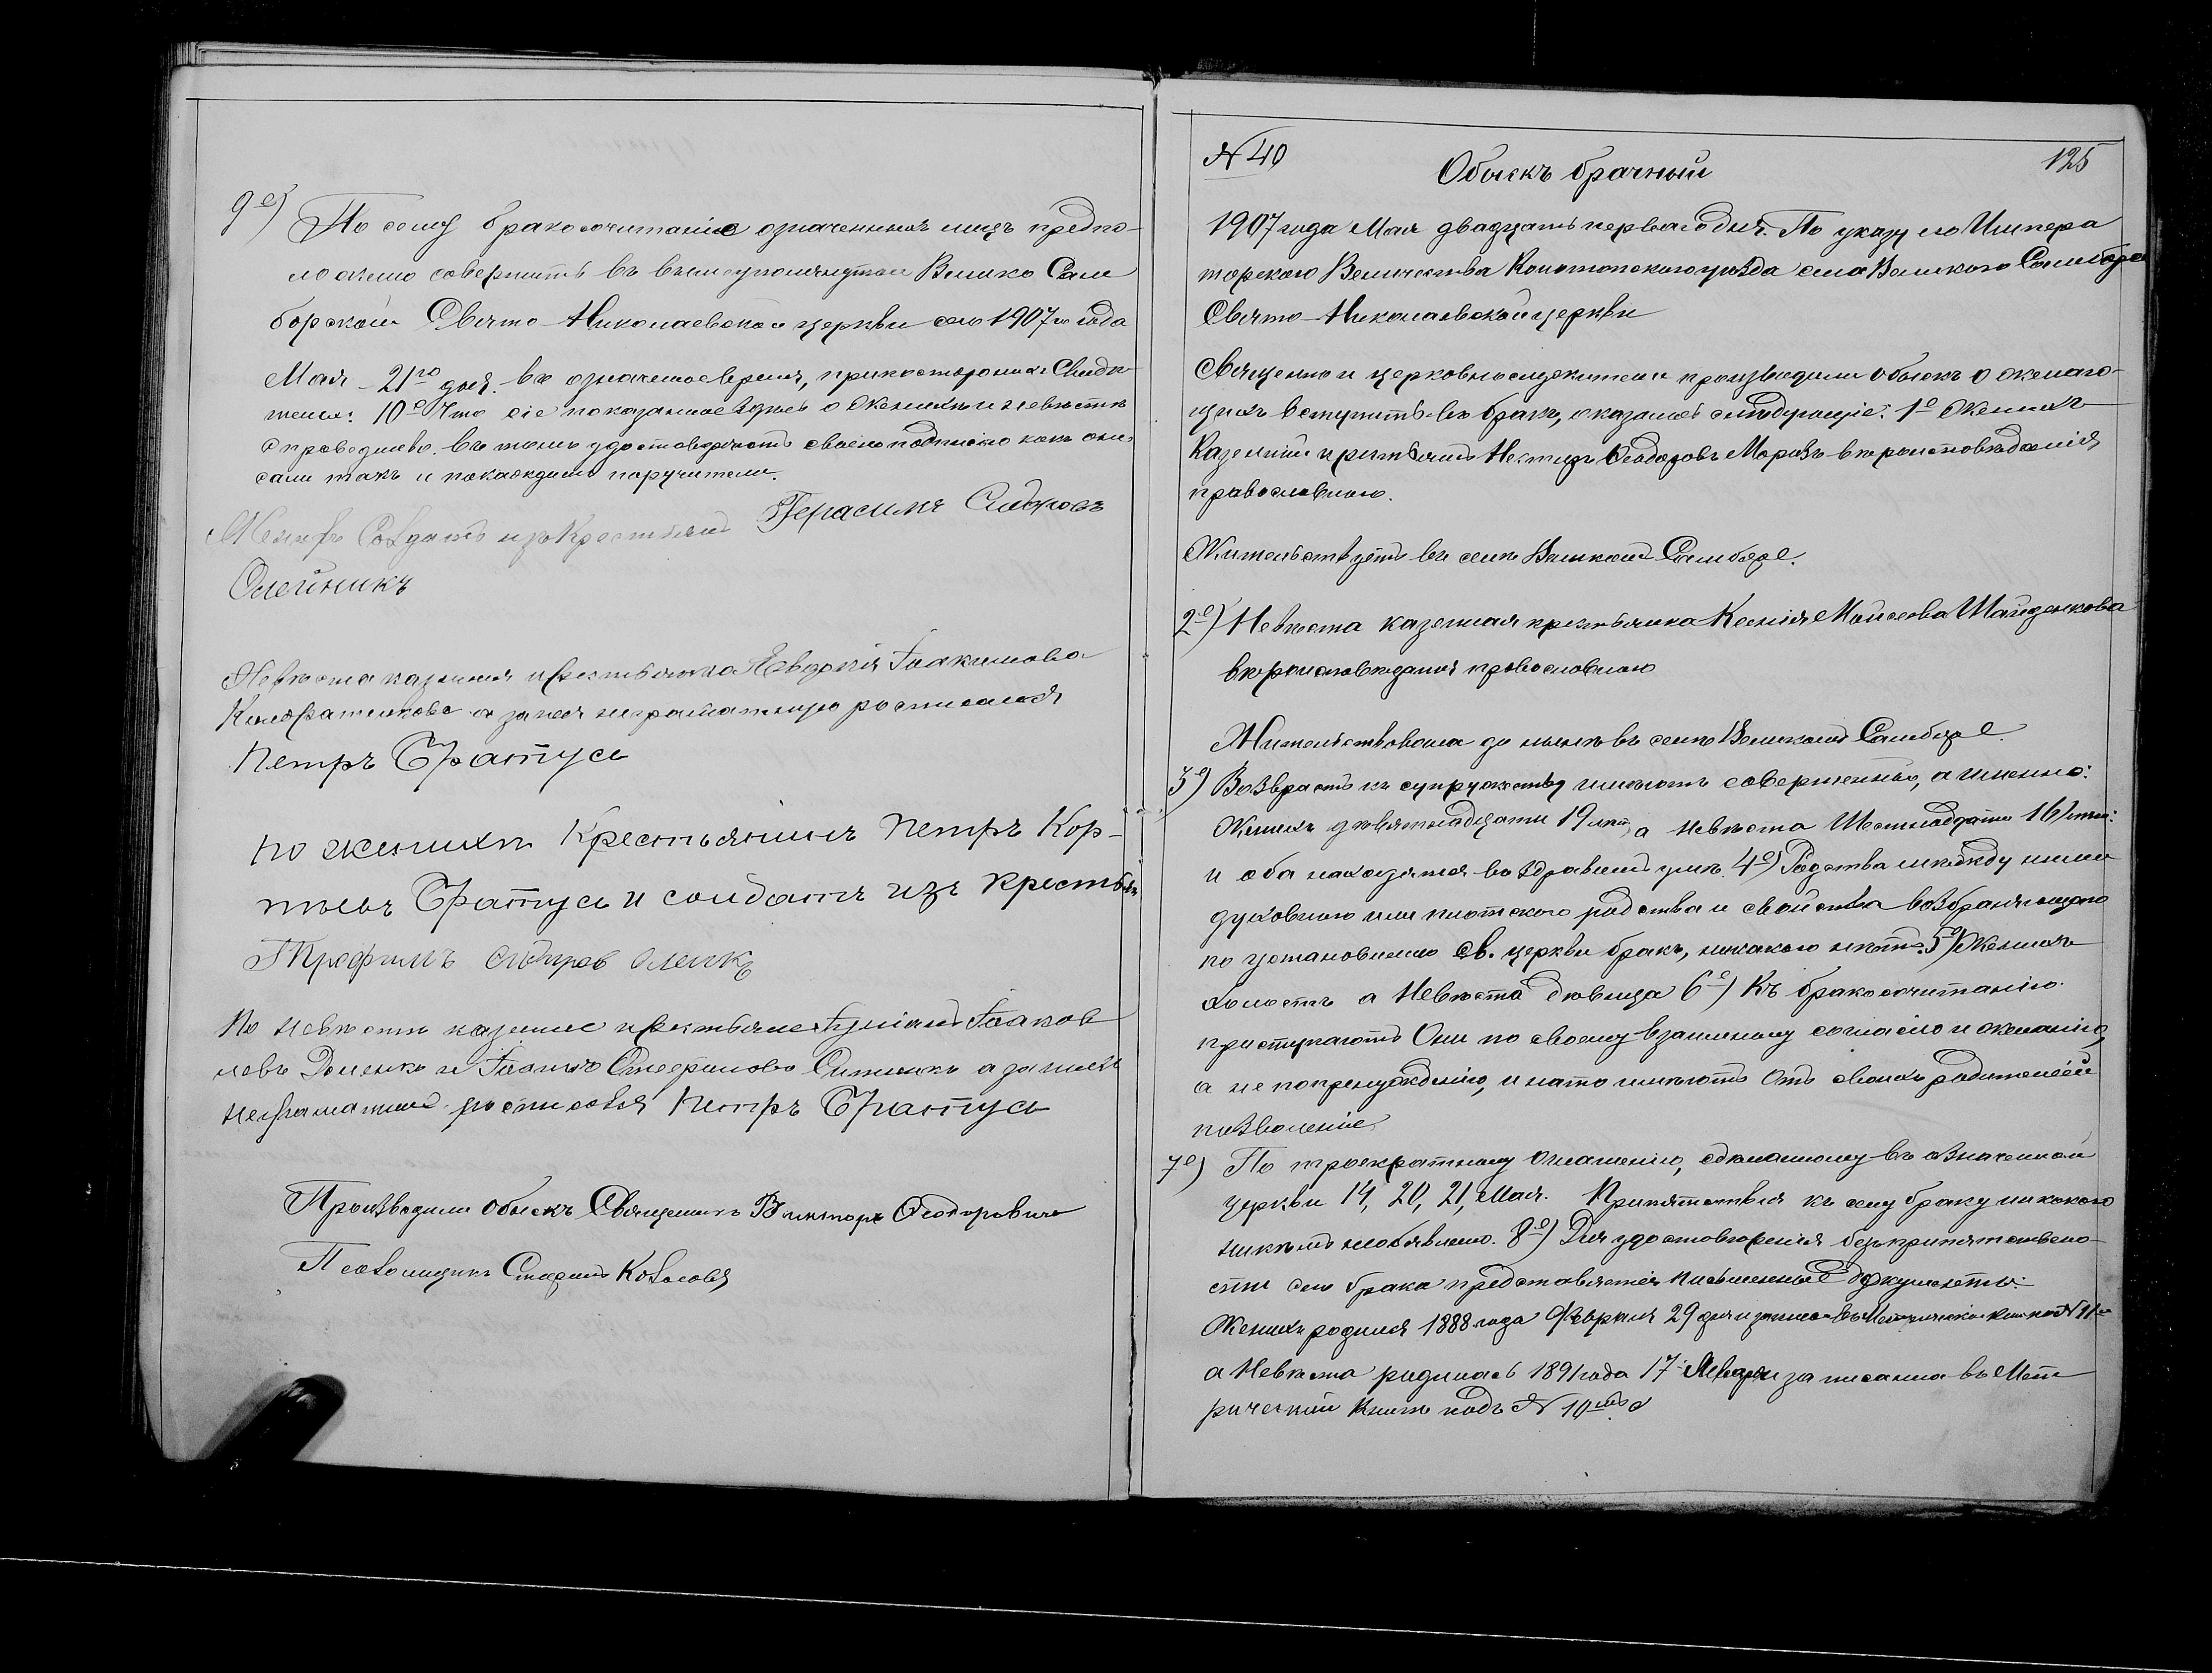 9е) По сему бракосочитаніе означенныхъ лицъ предпо-
ложено совершить въ вышеупомянутой Велико Сам
борской Свято-Николаевской церкви сего 1907го года
Мая - 21го дня въ означеное время, при постороннихъ Свидѣ
теляхъ: 10е Что сіе показанное здѣсь о Женихѣ и невѣстѣ
справедливо. въ томъ удостовѣряютъ своею подписью какъ они
сами такъ и по каждомъ поручители.
Женихъ Солдатъ изъ Крестьянъ Герасимъ Сидоровъ
Олейникъ
Невѣста казенная крестьянка Евдокія Іоакимова
а за нея неграматную росписался
Петръ Братусь
по женихѣ Крестьянинъ Петръ Кор-
Братусь и солдатъ изъ Крестьян
Трофимъ
По невѣстѣ казенные крестьяне Іаков
левъ Доценко и а за нихъ
неграматныхъ росписался Петръ Братусь
Производили обыскъ Священникъ Викторъ Ѳеодоровичъ
Псаломщикъ
N 40
Обыскъ брачный
125
1907 года Мая двадцать перваго дня. По указу его Импера
торского Величества Конотопского уѣзда села Великого Самбора
Свято-Николаевской церкви
Священно и церковнослужители производили обыскъ о желаю-
щихъ вступить въ бракъ, оказалось слѣдующіе: 1е Женихъ
Казенный крестьянинъ Ѳеодоровъ Морозъ вѣроисповѣданія
православного.
Жительствуетъ въ селѣ Великомъ Самборе.
2е) Невѣста казенная крестьянка Ксенія Моисеева
вѣроисповеданія провославного
Жительствовала до нынѣ въ селе Великомъ Самборе
3е) Возврастъ къ супружеству имѣютъ совершенный, а именно:
Женихъ дювятнадцати 19 лѣт, а невѣста Шестнадцати 16 лѣт:
и оба находятся въ здравомъ умѣ. 4е) Родства между ними
духовного или плотского родства и свойства возбраняющого
по установленію св. церкви бракъ, никакого нѣтъ. 5е) Женихъ
холостъ а Невѣста дювица 6е) Къ бракосочитанію
приступаютъ Они по своему взаимному согласію и желанію,
а не по принуждению, и на то имѣютъ Отъ своихъ родителей
позволеніе
7е) По троекратному Оглашенію, сдѣланному въ означенной
церкви 14, 20, 21, Мая. Припятствія къ сему браку никакого
никѣмъ необявлено. 8е) Для удостовѣренія безприпятствено-
сти сего брака представляется письменные документы:
Женихъ родился 1888 года Февраля 29 дня и записанъ въ Метрической книге подъ N 11м
а Невѣста родилась 1891 года 17 Января записанна въ Мет
рической Книге подъ N 10мъ